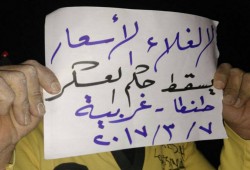 لا لغلاء الأسعار
يسقط حكم العسكر
طنطا - غربية
٢٠١٧/٣/٧